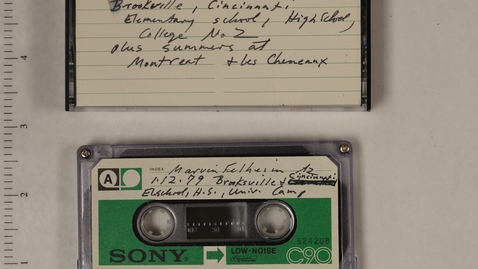 Brookville, Cincinnati
Elementary school, High School,
College No 2
plus summers at
Montreat & Les Cheneaux
4
3
2
1
A
INDEX
Marvin Felheim
1.12.79 Brooksville &
El school, H.S., Univ. Camp
SONY
LOW-NOISE
C90
524208